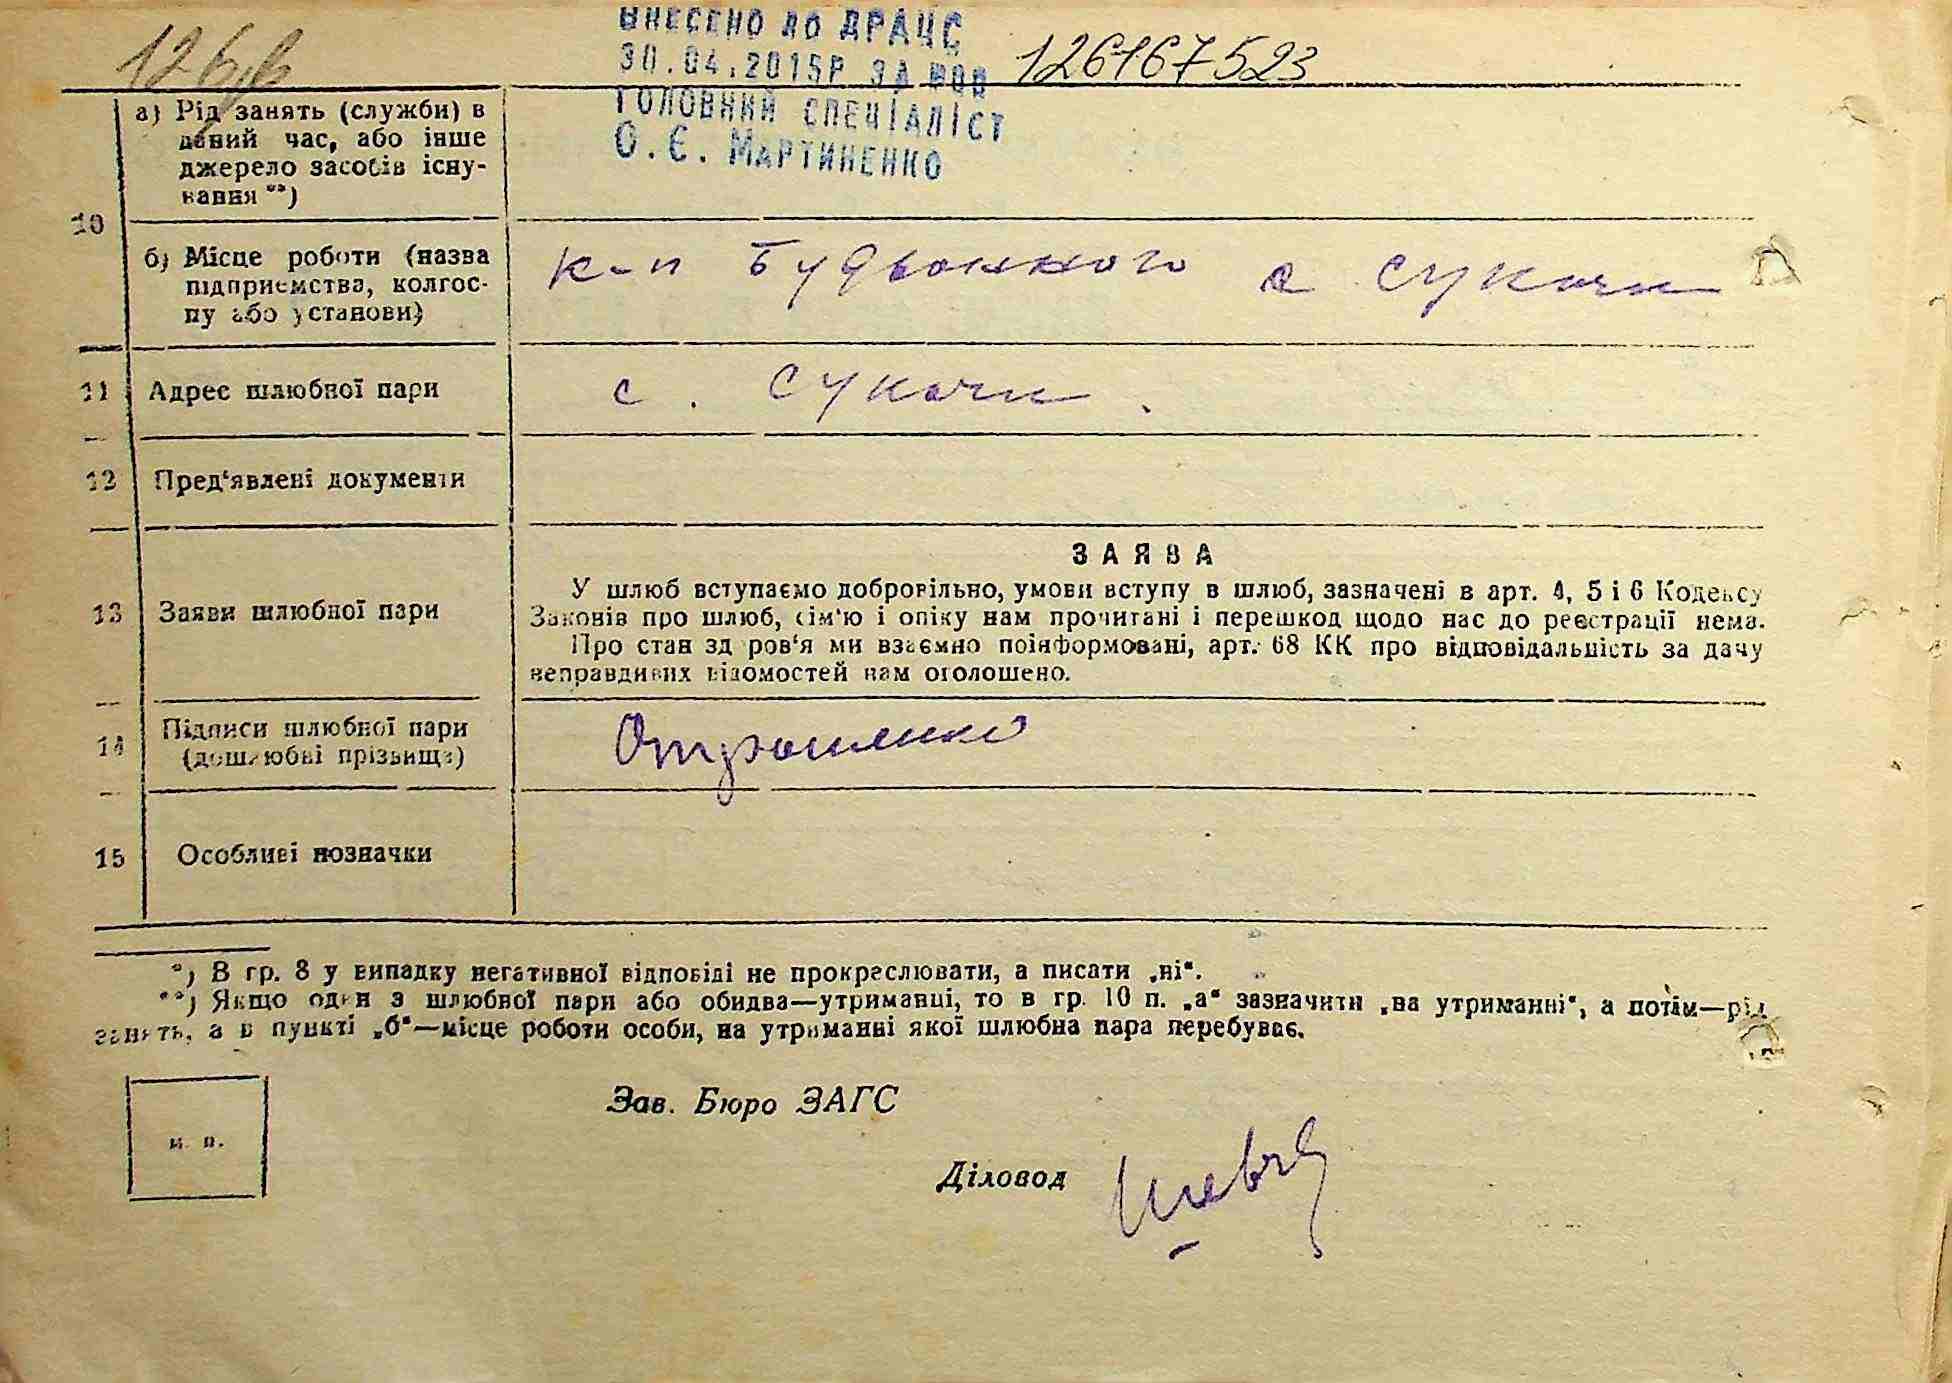 126
ВНЕСЕНО ДО ДРАЦС
30.04.2015Р ЗА №00
126167523
ГОЛОВНИЙ СПЕЦІАЛІСТ
О.Є. МАРТИНЕНКО
10
а) Рід занять (служби) в
даний час, або інше
джерело засобів існу-
вання **)
б) Місце роботи (назва
підприємства, колгос-
пу або установи)
к-п Будьонного с Сукачи
11 Адрес шлюбної пари
с. Сукачи.
12 Пред‘явлені документи
13 Заяви шлюбної пари
ЗАЯВА
У шлюб вступаємо добровільно, умови вступу в шлюб, зазначені в арт. 4, 5 і 6 Кодексу
Законів про шлюб, сім‘ю і опіку нам прочитані і перешкод щодо нас до реєстрації нема.
Про стан здоров‘я ми взаємно поінформовані, арт. 68 КК про відповідальність за дачу
неправдивих відомостей нам оголошено.
14 Підписи шлюбної пари
(дошлюбні прізвища)
Отрошенко
15 Особливі позначки
*) В гр. 8 у випадку негативної відповіді не прокреслювати, а писати „ні“.
**) Якщо один з шлюбної пари або обидва—утриманці, то в гр. 10 п. „а“ зазначити „на утриманні“, а потім—рід
занять, а в пункті „б“—місце роботи особи, на утриманні якої шлюбна пара перебуває.
м. п.
Зав. Бюро ЗАГС
Діловод